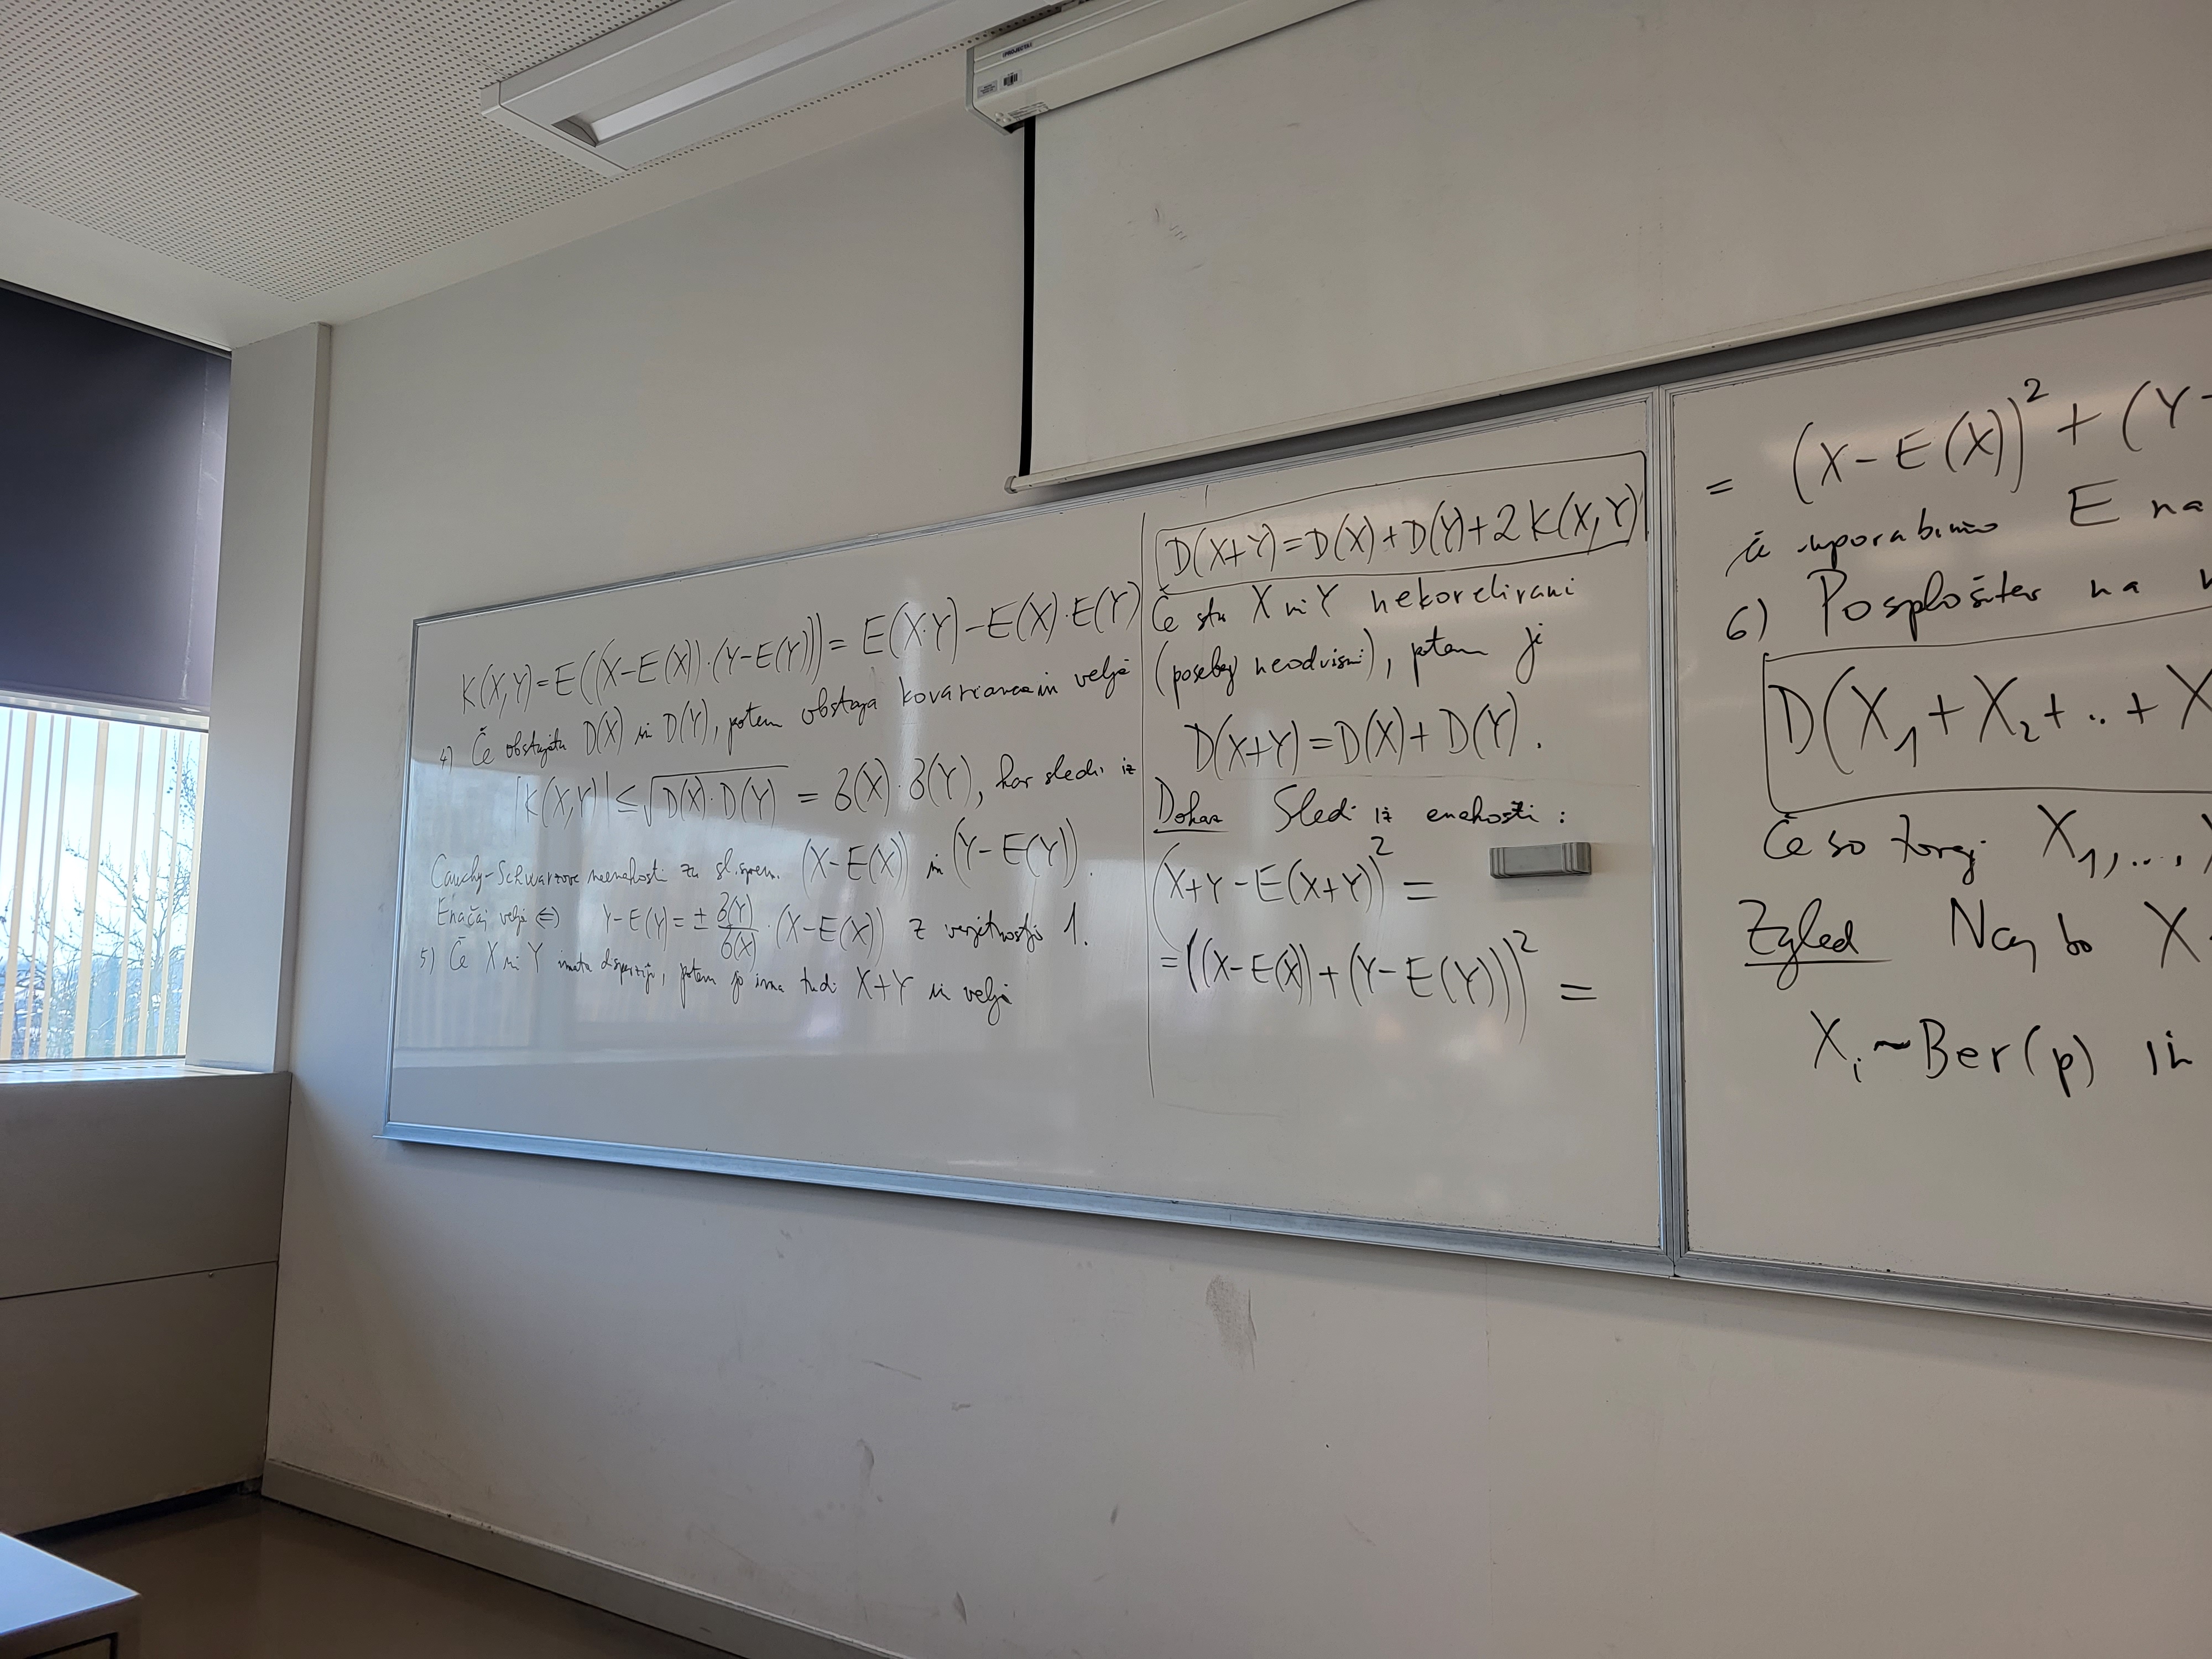 K(X,Y)=E((X-E(X))·(Y-E(Y)))=E(X·Y)-E(X)·E(Y)
4) Če obstajata D(X) in D(Y), potem obstaja kovarianca in velja
|K(X,Y)| ≤ √D(X)·D(Y) = σ(X)·σ(Y), kar sledi iz
Cauchy-Schwarzove neenakosti za sl. sprem. (X-E(X)) in (Y-E(Y)).
Enačaj velja ⇔ Y-E(Y)=± σ(Y)/σ(X) ·(X-E(X)) z verjetnostjo 1.
5) Če X in Y imata disperzijo, potem jo ima tudi X+Y in velja
D(X+Y)=D(X)+D(Y)+2K(X,Y)
Če sta X in Y nekorelirani
(posebej neodvisni), potem je
D(X+Y)=D(X)+D(Y).
Dokaz Sledi iz enakosti:
(X+Y-E(X+Y))² =
=((X-E(X))+(Y-E(Y)))² =
= (X-E(X))²+(Y-
če uporabimo E na
6) Posplošitev na
D(X₁+X₂+..+X
Če so torej X₁,...,
Zgled Naj bo X
Xᵢ~Ber(p) in